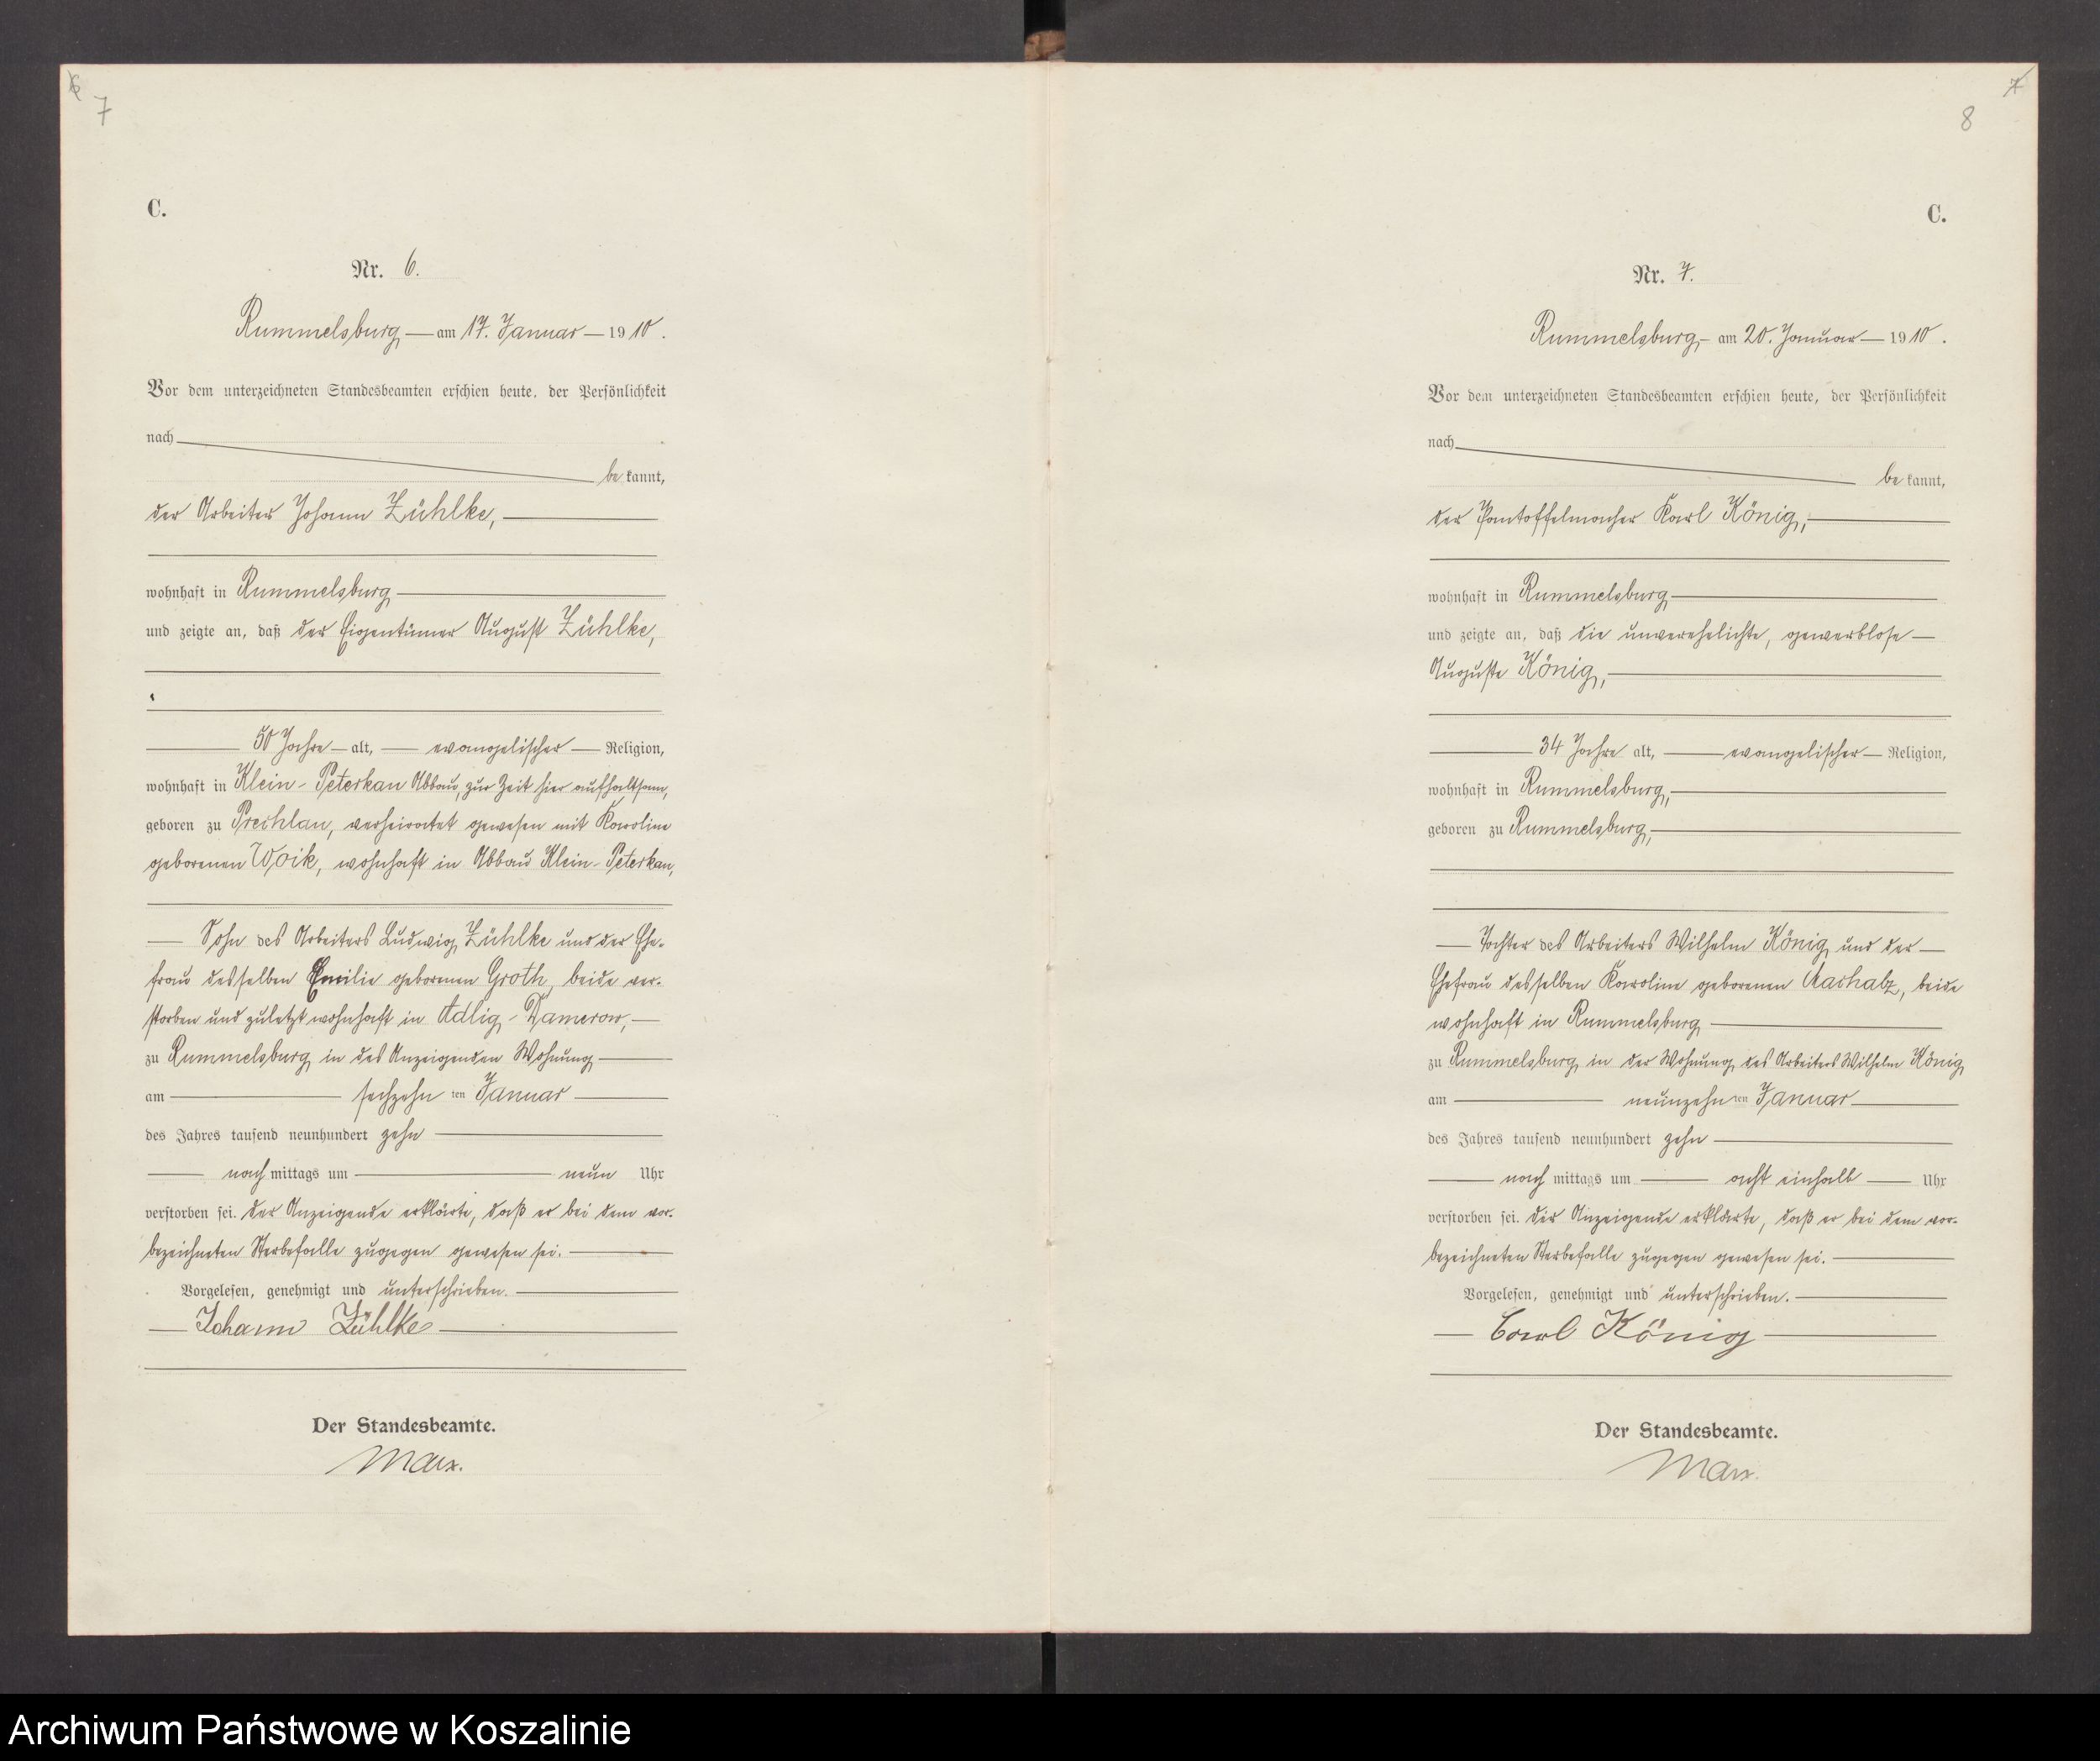 6
7
C.
Nr. 6.
Rummelsburg, am 17. Januar 1910.
Vor dem unterzeichneten Standesbeamten erschien heute, der Persönlichkeit
nach
bekannt,
der Arbeiter Johann Zühlke,
wohnhaft in Rummelsburg
und zeigte an, daß der Eigentümer August Zühlke,
50 Jahre alt, evangelischer Religion,
wohnhaft in Klein-Peterkau Abbau, zur Zeit hier aufhaltsam,
geboren zu Prechlau, verheiratet gewesen mit Karoline
geborenen Woik, wohnhaft in Abbau Klein-Peterkau,
Sohn des Arbeiters Ludwig Zühlke und der Ehe-
frau desselben Emilie geborenen Groth, beide ver-
storben und zuletzt wohnhaft in Adlig-Damerow,
zu Rummelsburg in des Anzeigenden Wohnung
am sechzehnten Januar
des Jahres tausend neunhundert zehn
nachmittags um neun Uhr
verstorben sei. Der Anzeigende erklärte, daß er bei dem vor-
bezeichneten Sterbefalle zugegen gewesen sei.
Vorgelesen, genehmigt und unterschrieben.
Johann Zühlke
Der Standesbeamte.
Marx.
7
8
C.
Nr. 7.
Rummelsburg, am 20. Januar 1910.
Vor dem unterzeichneten Standesbeamten erschien heute, der Persönlichkeit
nach
bekannt,
der Pantoffelmacher Karl König,
wohnhaft in Rummelsburg
und zeigte an, daß die unverehelichte, gewerblose
Auguste König,
34 Jahre alt, evangelischer Religion,
wohnhaft in Rummelsburg,
geboren zu Rummelsburg,
Tochter des Arbeiters Wilhelm König und der
Ehefrau desselben Karoline geborenen beide
wohnhaft in Rummelsburg
zu Rummelsburg in der Wohnung des Arbeiters Wilhelm König
am neunzehnten Januar
des Jahres tausend neunhundert zehn
nachmittags um acht einhalb Uhr
verstorben sei. Der Anzeigende erklärte, daß er bei dem vor-
bezeichneten Sterbefalle zugegen gewesen sei.
Vorgelesen, genehmigt und unterschrieben.
Carl König
Der Standesbeamte.
Marx.
Archiwum Państwowe w Koszalinie